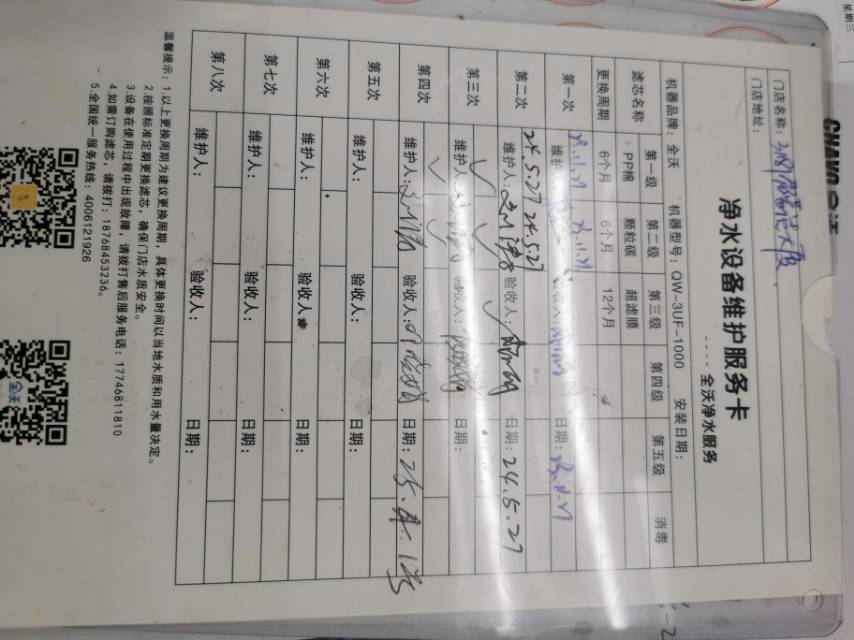 净水设备维护服务卡
---- 全沃净水服务
门店名称：
门店地址：
机器品牌：全沃 机器型号：QW-3UF-1000 安装日期：
滤芯名称 第一级 PP棉 第二级 颗粒碳 第三级 超滤膜 第四级 第五级 消毒
更换周期 6个月 6个月 12个月
第一次
维护 日期：
第二次 24.5.27 24.5.27 ✓
维护人： 验收人： 日期：24.5.27
第三次 ✓ ✓
维护人： 日期：
第四次 ✓ ✓
维护人： 验收人： 日期：25.
第五次
维护人： 验收人： 日期：
第六次
维护人： 验收人： 日期：
第七次
维护人： 验收人： 日期：
第八次
维护人： 验收人： 日期：
温馨提示：1.以上更换周期为建议更换周期，具体更换时间以当地水质和用水量决定。
2.按照标准定期更换滤芯，确保门店水质安全。
3.设备在使用过程中出现故障，请拨打售后服务电话：17746811810
4.如需订购滤芯，请拨打：18768453236。
5.全国统一服务热线：4006121926
全沃
星期三